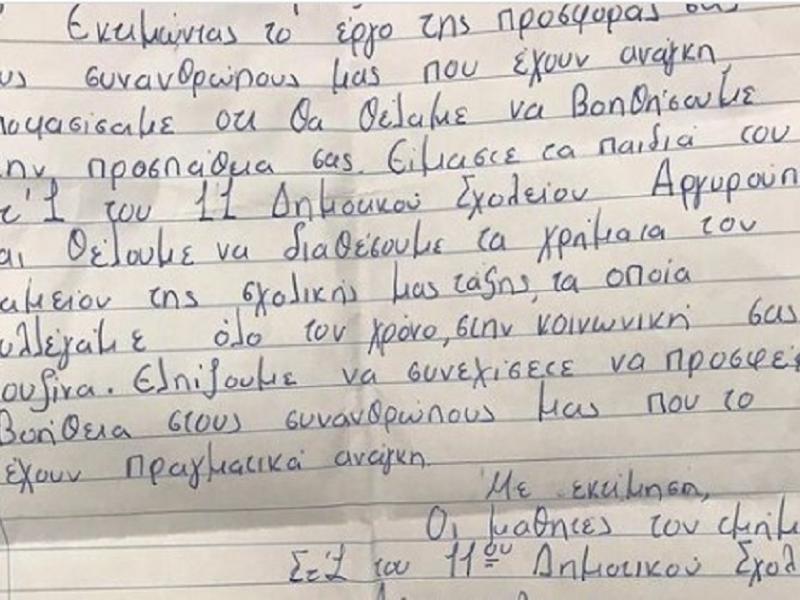 Εκτιμώντας το έργο της προσφοράς σας
υς συνανθρώπους μας που έχουν ανάγκη,
ποφασίσαμε ότι θα θέλαμε να βοηθήσουμε
ην προσπάθεια σας. Είμαστε τα παιδιά του
τ'1 του 11 Δημοτικού Σχολείου Αργυρούπ
αι θέλουμε να διαθέσουμε τα χρήματα του
αμείου της σχολικής μας τάξης, τα οποία
υλλέγαμε όλο τον χρόνο, στην κοινωνική σας
ουζίνα. Ελπίζουμε να συνεχίσετε να προσφέρ
βοήθεια στους συνανθρώπους μας που το
έχουν πραγματικά ανάγκη.
Με εκτίμηση,
Οι μαθητές του τμήμ
Στ'1 του 11ου Δημοτικού Σχολ